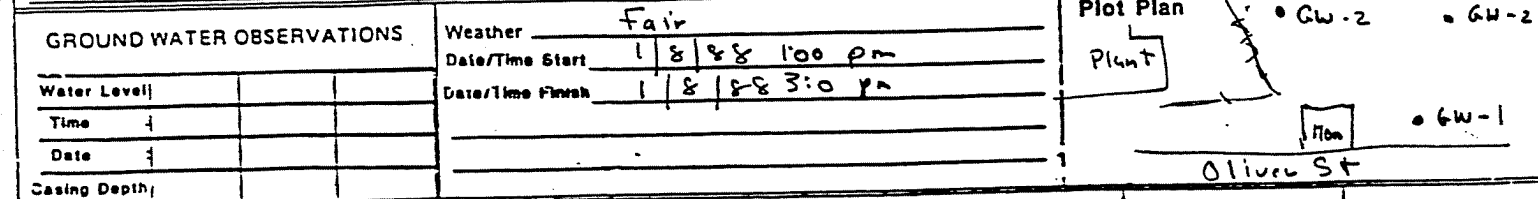 GROUND WATER OBSERVATIONS
Water Level
Time
Date
Casing Depth
Weather Fair
Date/Time Start 1/8/88 1:00 pm
Date/Time Finish 1/8/88 3:0 pm
Plot Plan
GW-2
GW-2
Plant
GW-1
Oliver St